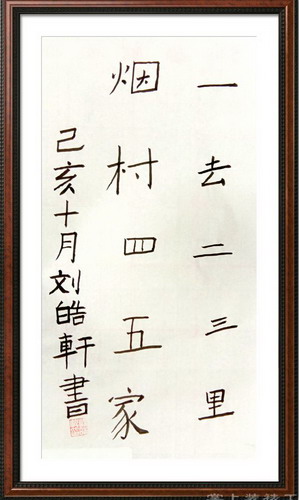 一去二三里
烟村四五家
己亥十月刘皓軒書